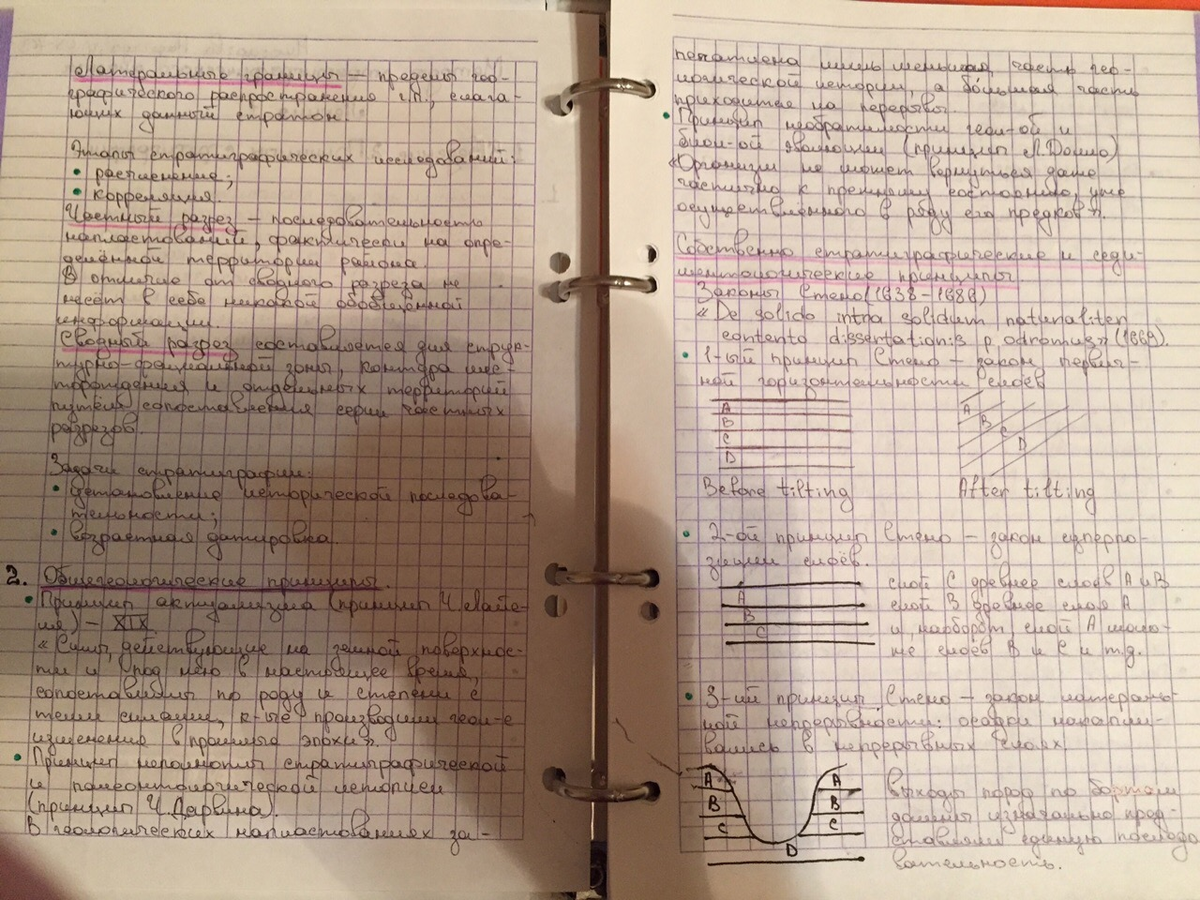 Латеральные границы — пределы гео-
графического распространения г.п., слага-
ющих данный стратон.
Этапы стратиграфических исследований:
• расчленение;
• корреляция.
Частный разрез — последовательность
напластований, фактически на опре-
делённой территории района.
В отличие от сводного разреза не
несёт в себе никакой обобщённой
информации.
Сводный разрез составляется для струк-
турно-фациальной зоны, контура мес-
торождения и отдельных территорий
путём сопоставления серии частных
разрезов.
Задачи стратиграфии:
• установление исторической последова-
тельности;
• возрастная датировка.
2. Общегеологические принципы.
• Принцип актуализма (принцип Ч. Лайе-
ля) — XIX
«Силы, действующие на земной поверхнос-
ти и под нею в настоящее время,
сопоставимы по роду и степени с
теми силами, к-ые производили геол-е
изменения в прошлые эпохи».
• Принцип неполноты стратиграфической
и палеонтологической летописи
(принцип Ч. Дарвина).
В геологических напластованиях за-
печатлена лишь меньшая часть гео-
логической истории, а большая часть
приходится на перерывы.
• Принцип необратимости геол-ой и
биол-ой эволюции (принцип Л. Долло)
«Организм не может вернуться даже
частично к прежнему состоянию, уже
осуществленного в ряду его предков».
Собственно стратиграфические и седи-
ментологические принципы.
Законы Стено (1638–1686)
«De solido intra solidum naturaliter
contento dissertationis p odromus» (1669).
• 1-ый принцип Стено — закон первич-
ной горизонтальности слоёв
A
B
C
D
Before tilting
A
B
C
D
After tilting
• 2-ой принцип Стено — закон суперпо-
зиции слоёв.
A
B
C
слой С древнее слоёв А и В
слой В древнее слоя А
и наоборот слой А моло-
же слоёв В и С и т.д.
• 3-ий принцип Стено — закон латераль-
ной непрерывности: осадки накапли-
вались в непрерывных слоях.
A A
B B
C C
D
выходы пород по бортам
долины изначально пред-
ставляли единую последо
вательность.